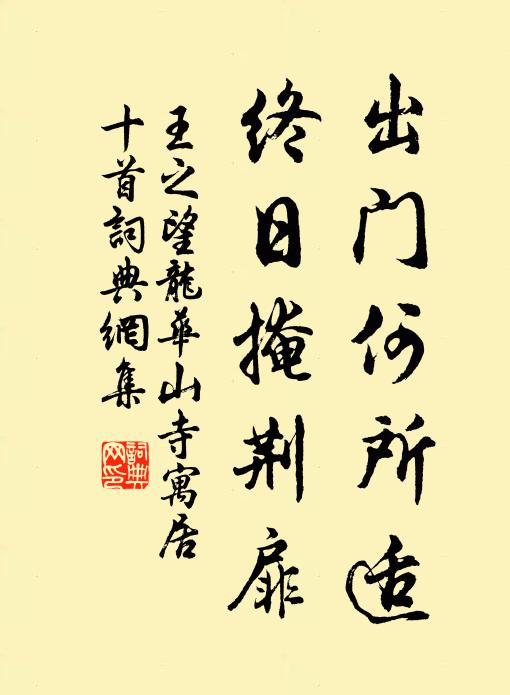 出门何所适
终日掩荆扉
王之望龍華山寺寓居
十首詞典網集
詞典
网印